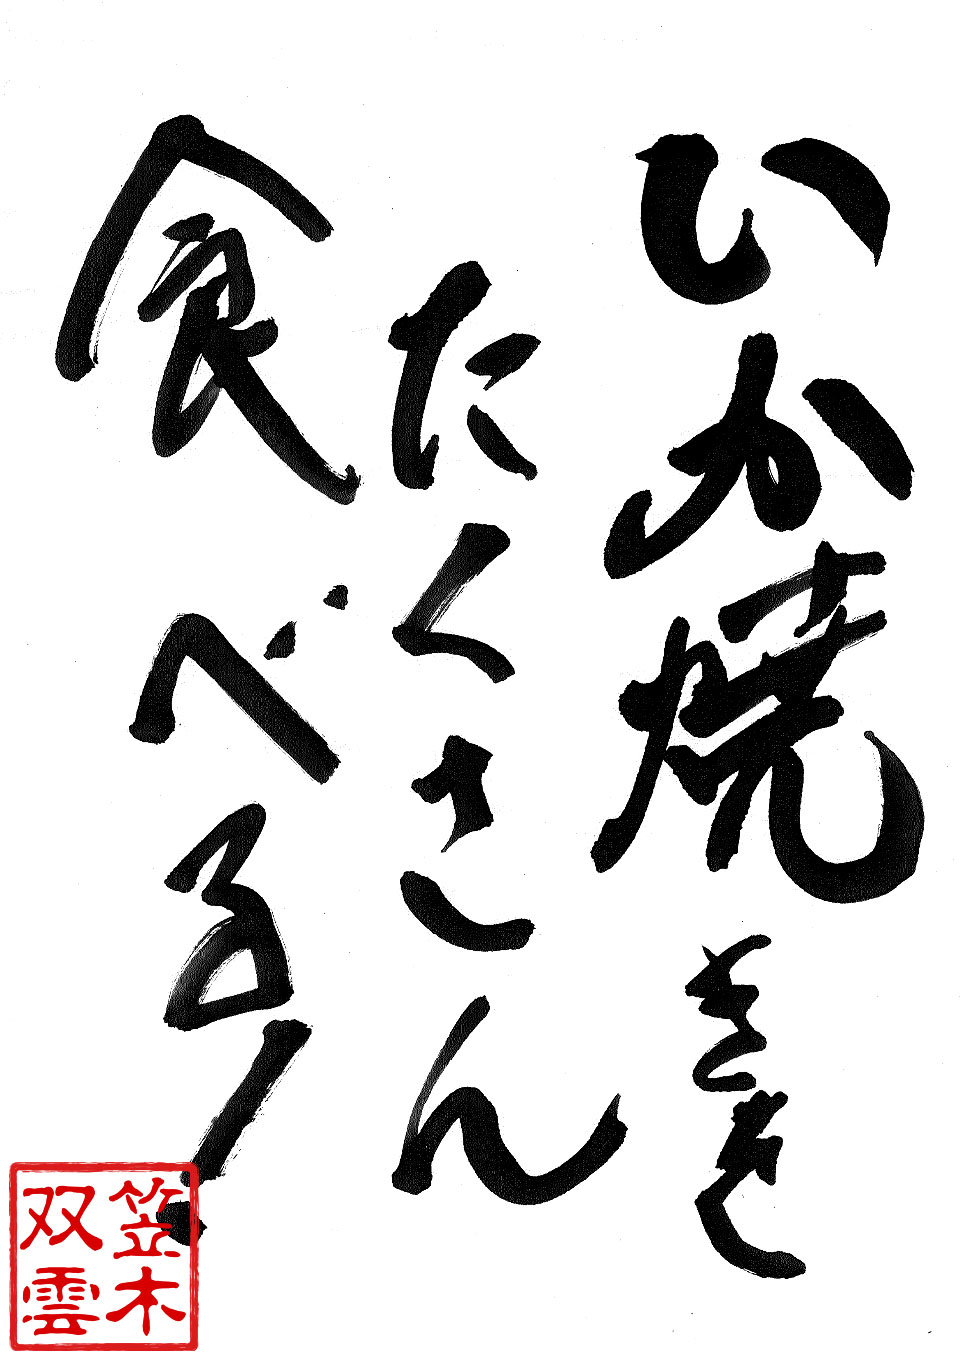 いか焼きを
たくさん
食べる!
笠木
双雲